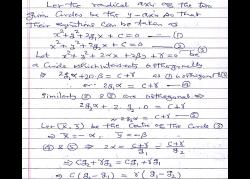 Let the radical axis of the two
given circles be the y-axis so that
their equation can be taken as
x² + y² + 2g₁x + c = 0 — (1)
x² + y² + 2g₂x + c = 0 — (2)
Let x² + y² + 2αx + 2βy + r = 0 — (3) be
a circle which intersects (1) orthogonally
⇒ 2g₁α + 2·0·β = c + r
or 2g₁α = c + r — (4)
Similarly (2) & (3) are orthogonal ⇒
2g₂α + 2 · β · 0 = c + r
Let (x̄, ȳ) be the centre of the circle (3)
⇒ x̄ = -α, ȳ = -β
(4) & (5) ⇒ 2α = (c + r)/g₁ = (c + r)/g₂
⇒ cg₂ + rg₂ = cg₁ + rg₁
⇒ c(g₂ - g₁) = r(g₁ - g₂)